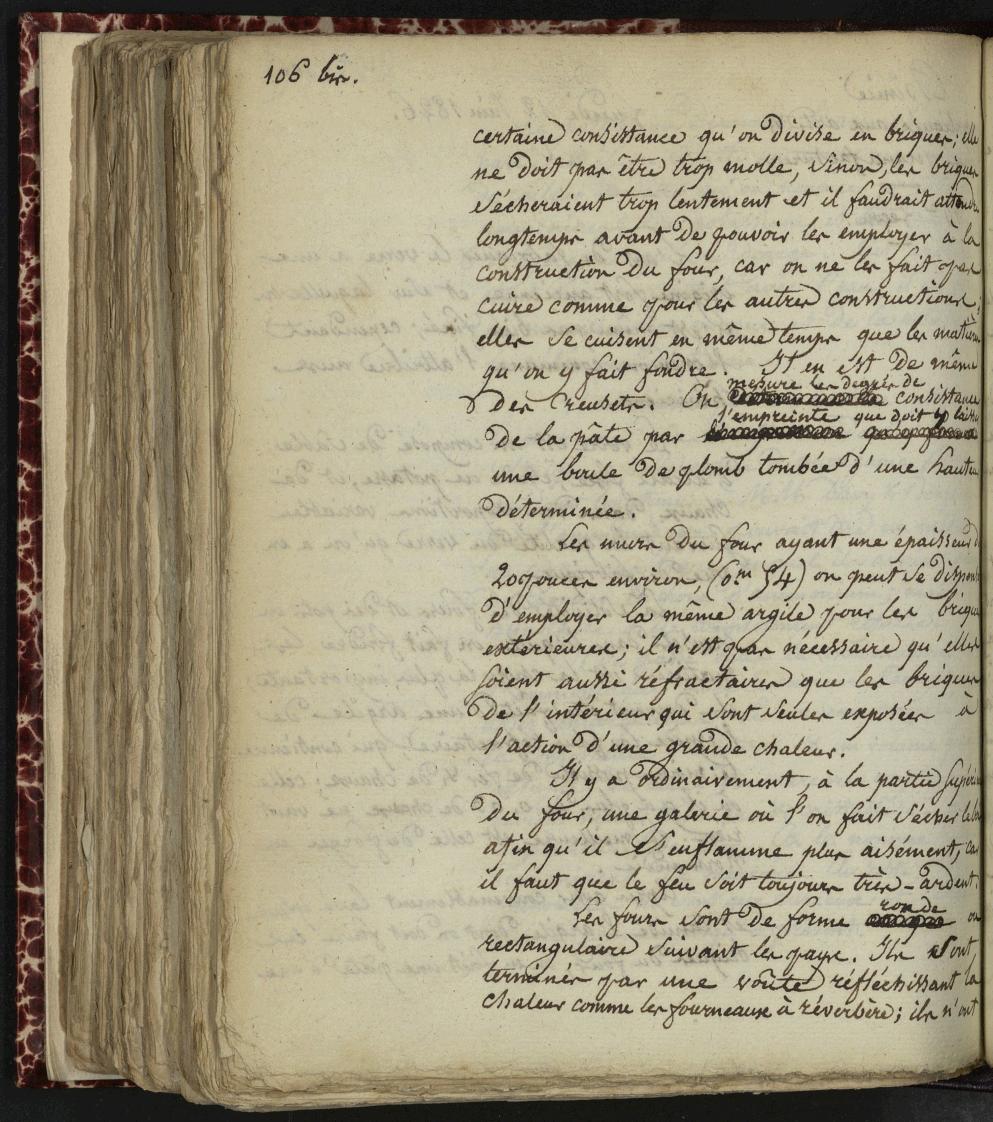 106 bis.
certaine consistance qu'on divise en briques; elle
ne doit pas être trop molle, sinon, les briques
sécheraient trop lentement et il faudrait attendre
longtemps avant de pouvoir les employer à la
construction du four, car on ne les fait pas
cuire comme pour les autres constructions;
elles se cuisent en même temps que les matiè
qu'on y fait fondre. Il en est de même
des creusets. On mesure les degrés de consistance
de la pâte par l'empreinte que doit y laisser
une boule de plomb tombée d'une hauteu
déterminée.
Les murs du four ayant une épaisseur d
20 pouces environ, (0m 54) on peut se dispens
d'employer la même argile pour les briques
extérieures; il n'est pas nécessaire qu'elles
soient aussi réfractaires que les briques
de l'intérieur qui sont seules exposées à
l'action d'une grande chaleur.
Il y a ordinairement, à la partie supérie
du four, une galerie où l'on fait sécher le bo
afin qu'il s'enflamme plus aisément, ca
il faut que le feu soit toujours très-ardent.
Les fours sont de forme ronde ou
rectangulaire suivant les pays. Ils sont
terminés par une voûte réfléchissant la
chaleur comme les fourneaux à réverbère; ils n'ont